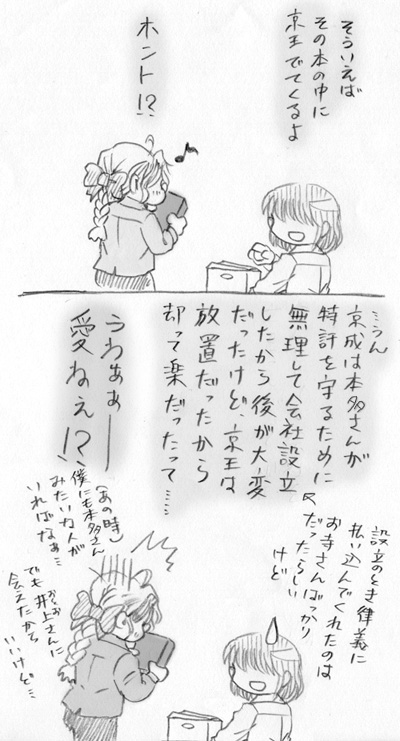 そういえば
その本の中に
京王でてくるよ
ホント!?
…うん
京成は本多さんが
特許を守るために
無理して会社設立
したから後が大変
だったけど、京王は
放置だったから
却って楽だったって……
うわぁぁ――
愛ねぇ!?
設立のとき律義に
払い込んでくれたのは
お寺さんばっかり
だったらしい
けど
(あの時)
僕にも本多さん
みたいな人が
いればなぁ…
でも井上さんに
会えたから
いいけど…